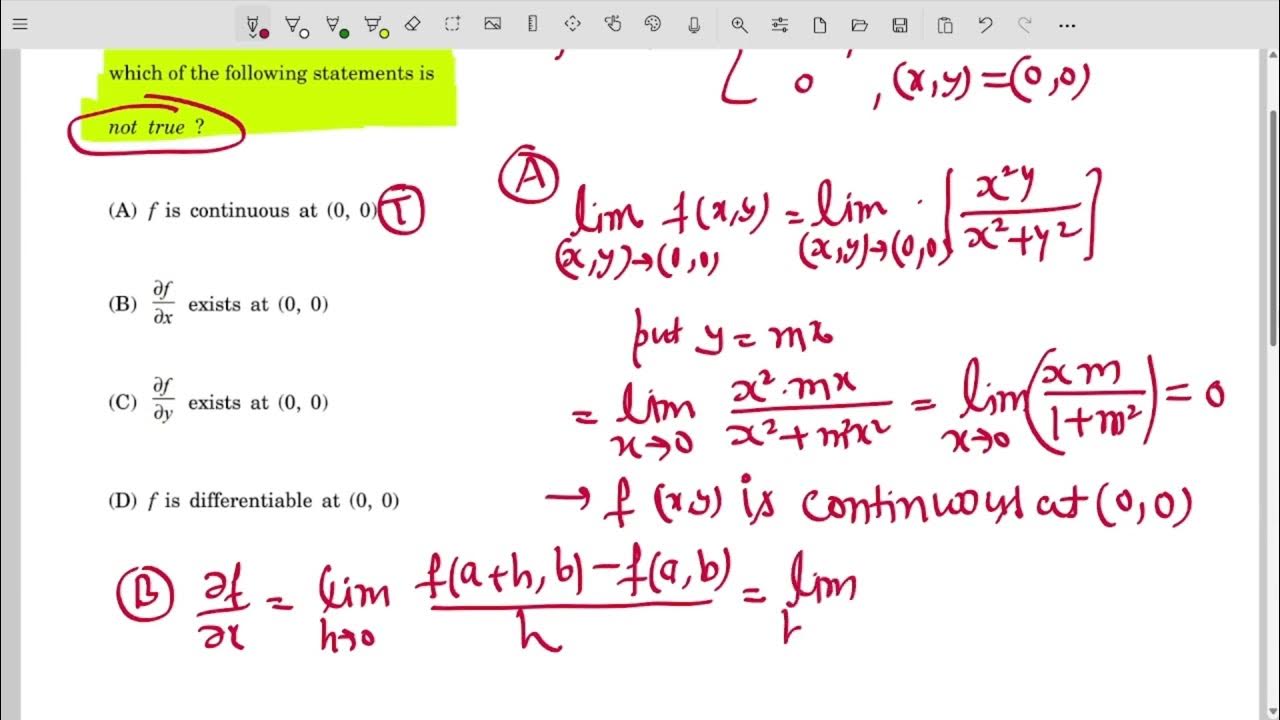 which of the following statements is
not true ?
0 , (x,y)=(0,0)
(A) f is continuous at (0, 0) T
(B) ∂f/∂x exists at (0, 0)
(C) ∂f/∂y exists at (0, 0)
(D) f is differentiable at (0, 0)
A
lim f(x,y) = lim [x²y/(x²+y²)]
(x,y)→(0,0) (x,y)→(0,0)
put y = mx
= lim x²·mx/(x²+m²x²) = lim (xm/(1+m²)) = 0
x→0 x→0
→ f (x,y) is continuous at (0,0)
B ∂f/∂x = lim (f(a+h,b) − f(a,b))/h = lim
h→0